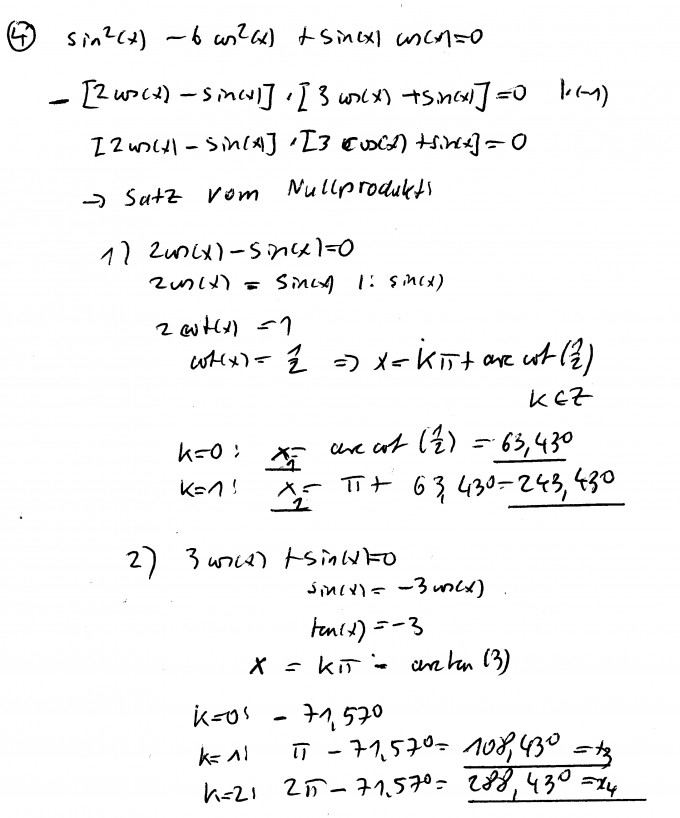 ④ sin²(x) - 6 cos²(x) + sin(x) cos(x) = 0
- [2 cos(x) - sin(x)] · [3 cos(x) + sin(x)] = 0 |·(-1)
[2 cos(x) - sin(x)] · [3 cos(x) + sin(x)] = 0
→ Satz vom Nullprodukt:
1) 2 cos(x) - sin(x) = 0
2 cos(x) = sin(x) |: sin(x)
2 cot(x) = 1
cot(x) = 1/2 ⇒ x = kπ + arc cot (1/2)
k ∈ Z
k=0: x₁ = arc cot (1/2) = 63,43°
k=1: x₂ = π + 63,43° = 243,43°
2) 3 cos(x) + sin(x) = 0
sin(x) = -3 cos(x)
tan(x) = -3
x = kπ - arc tan (3)
k=0: - 71,57°
k=1: π - 71,57° = 108,43° = x₃
k=2: 2π - 71,57° = 288,43° = x₄